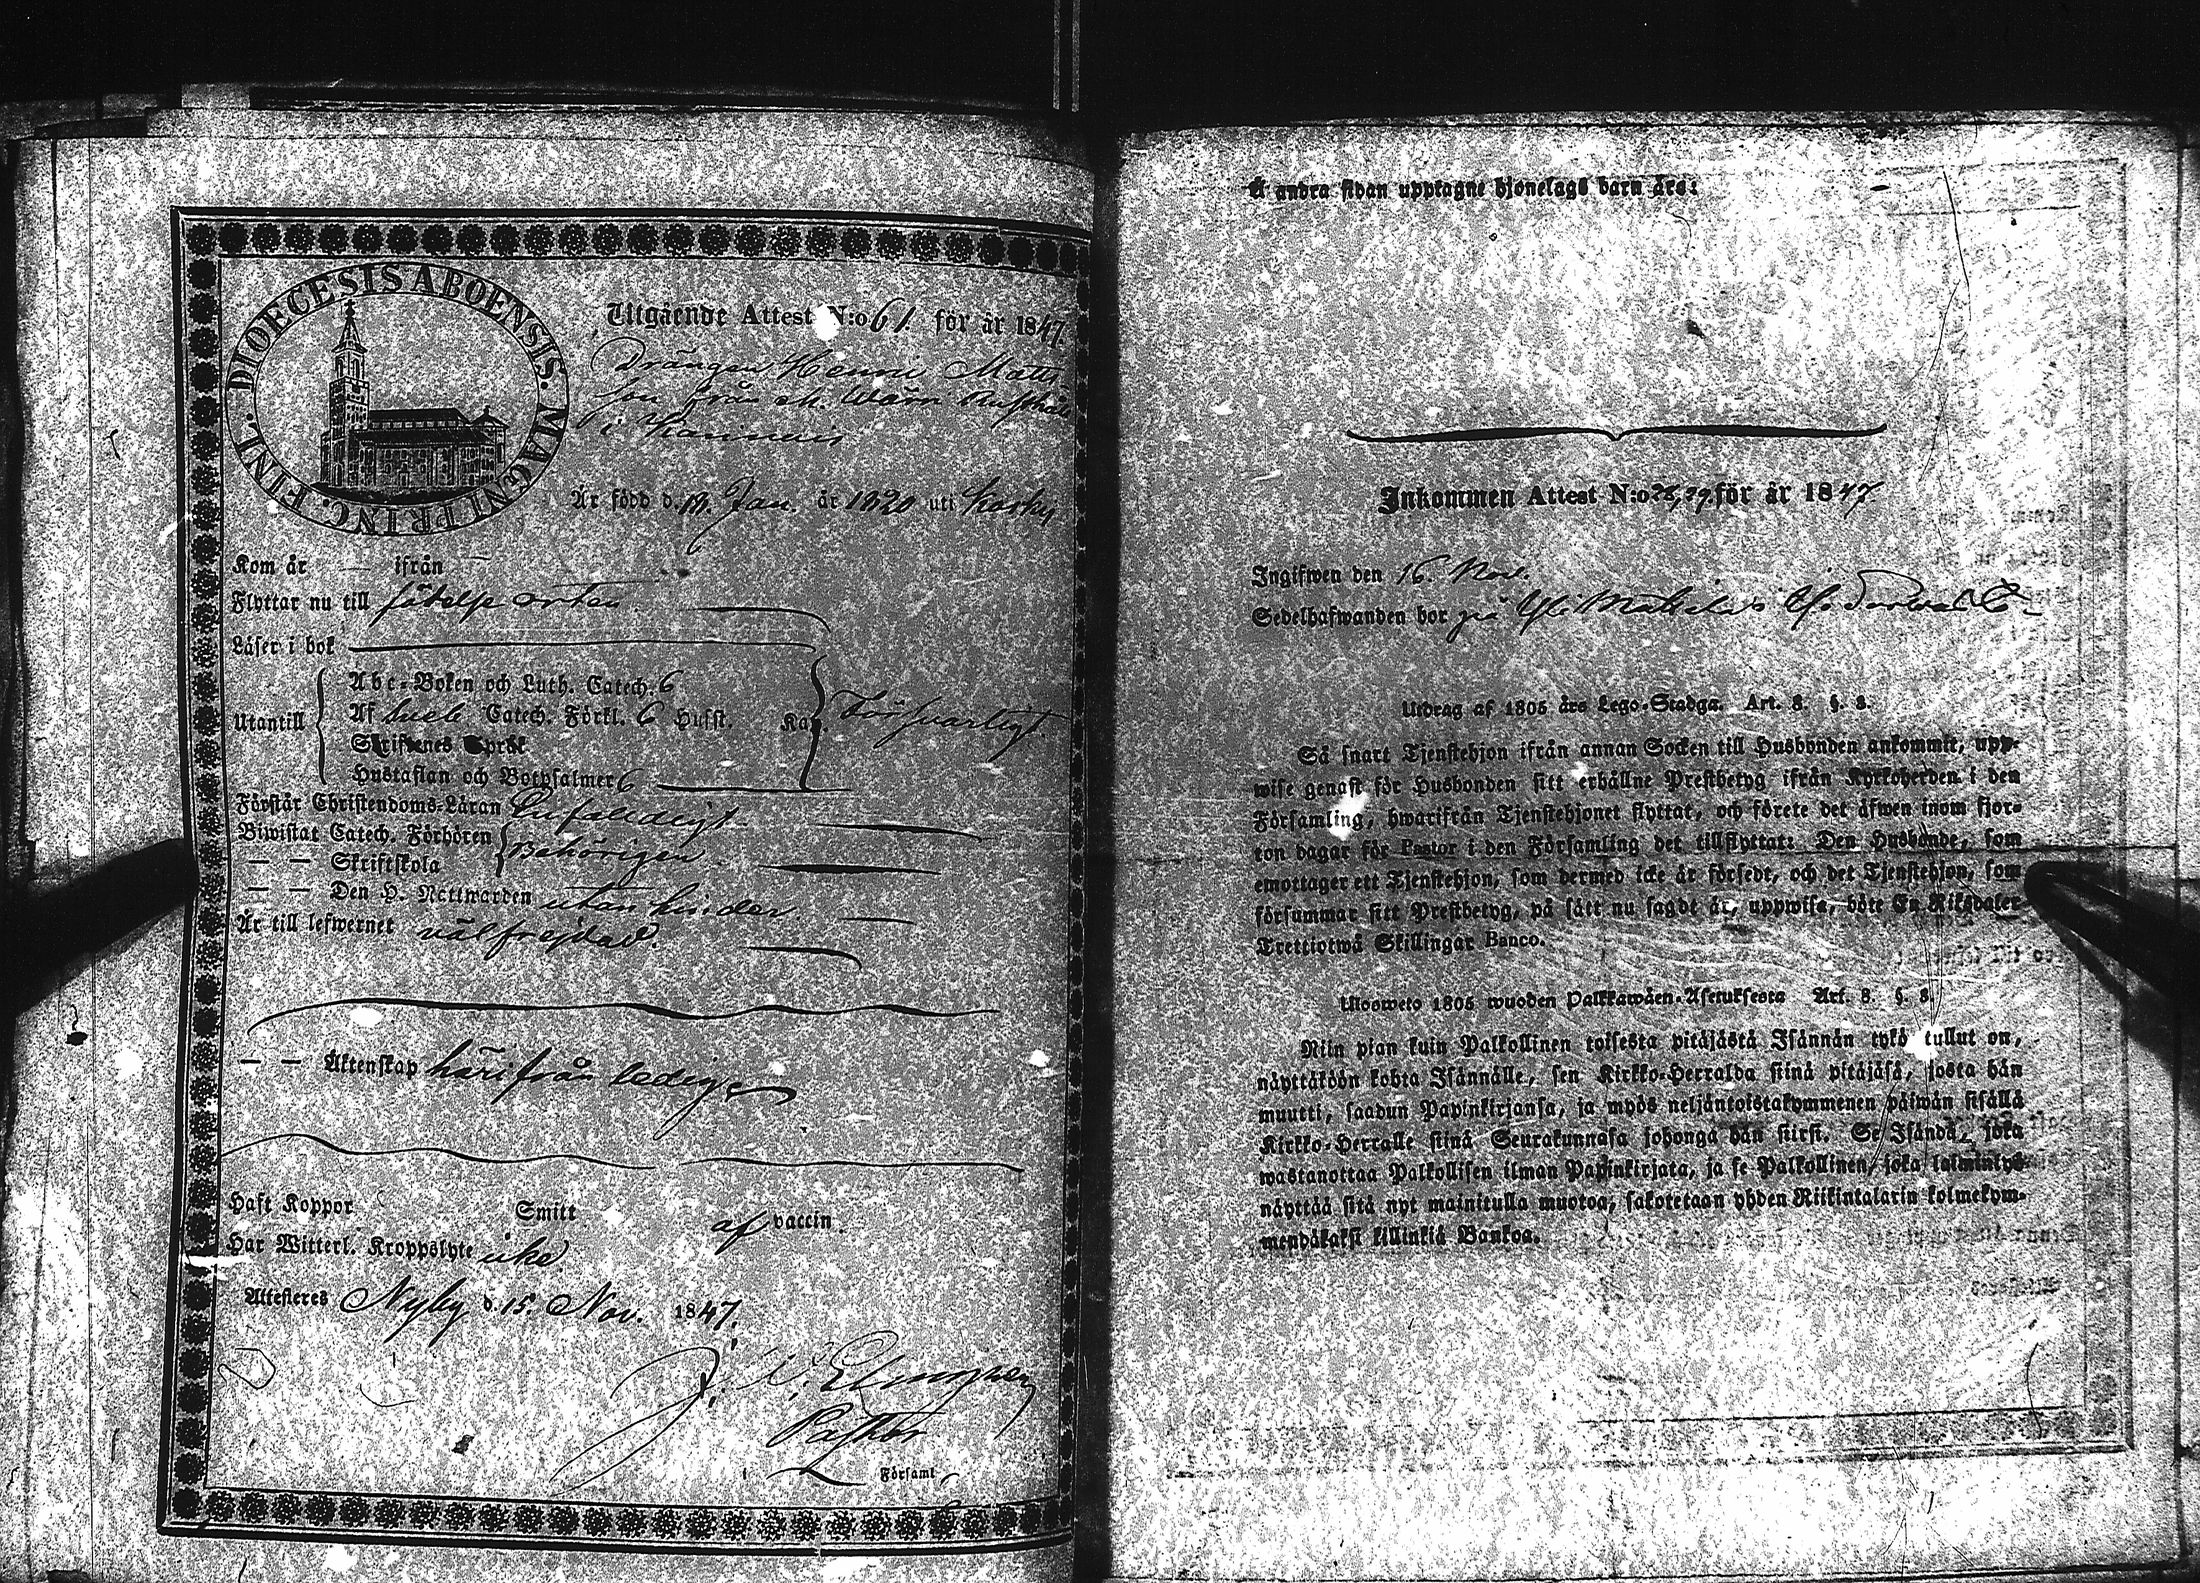 DIOECESIS ABOENSIS. MAGNI PRINC. FINL.
Utgående Attest N:o 61 för år 1847.
Drängen Henric Matts
son från M. Wärri Rusthåll
i
Är född d. 18. Jan. år 1820 uti Kosky
Kom år — ifrån —
Flyttar nu till födelse orten.
Läser i bok
Utantill
Abc-Boken och Luth. Catech. 6
Af Catech. Förkl. 6 Hufst. Kap. Försvarligt.
Skriftenes Språk
Hustaflan och Botpsalmer 6
Förstår Christendoms-Läran Enfaldigt.
Biwistat Catech. Förhören
Behörigen.
— — Skriftskola
— — Den H. Nattwarden utan hinder.
Är till lefwernet välfrejdad.
— — Äktenskap härifrån ledig
Haft Koppor Smitt af vaccin
Har Witterl. Kroppslyte icke.
Attesteres Nyby d. 15. Nov. 1847.
Pastor
i Församl.
Å andra sidan upptagne hjonelags barn äro:
Inkommen Attest N:o 78,79. för år 1847
Ingifwen den 16. Nov.
Sedelhafwanden bor på
Utdrag af 1805 års Lego-Stadga. Art. 8. §. 8.
Så snart Tjenstehjon ifrån annan Socken till Husbonden ankommit, upp-
wise genast för Husbonden sitt erhållne Prestbetyg ifrån Kyrkoherden i den
Församling, hwarifrån Tjenstehjonet flyttat, och förete det äfwen inom fjor-
ton dagar för Pastor i den Församling det tillflyttat: Den Husbonde, som
emottager ett Tjenstehjon, som dermed icke är försedt, och det Tjenstehjon, som
försummar sitt Prestbetyg, på sätt nu sagdt är, uppwisa, böte En Riksdaler
Trettiotwå Skillingar Banco.
Ulooweto 1805 wuoden Palkkawäen-Asetuksesta Art. 8. §. 8.
Niin pian kuin Palkollinen toisesta pitäjästä Isännän tykö tullut on,
näyttäköön kohta Isännälle, sen Kirkko-Herralda siinä pitäjäsä, josta hän
muutti, saadun Papinkirjansa, ja myös neljäntoistakymmenen päiwän sisällä
Kirkko-Herralle siinä Seurakunnasa johonga hän siirsi. Se Isändä, joka
wastanottaa Palkollisen ilman Papinkirjata, ja se Palkollinen, joka laiminlyö
näyttää sitä nyt mainitulla muotoa, sakotetaan yhden Riikintalarin kolmekym-
mendäkaksi killinkiä Bankoa.